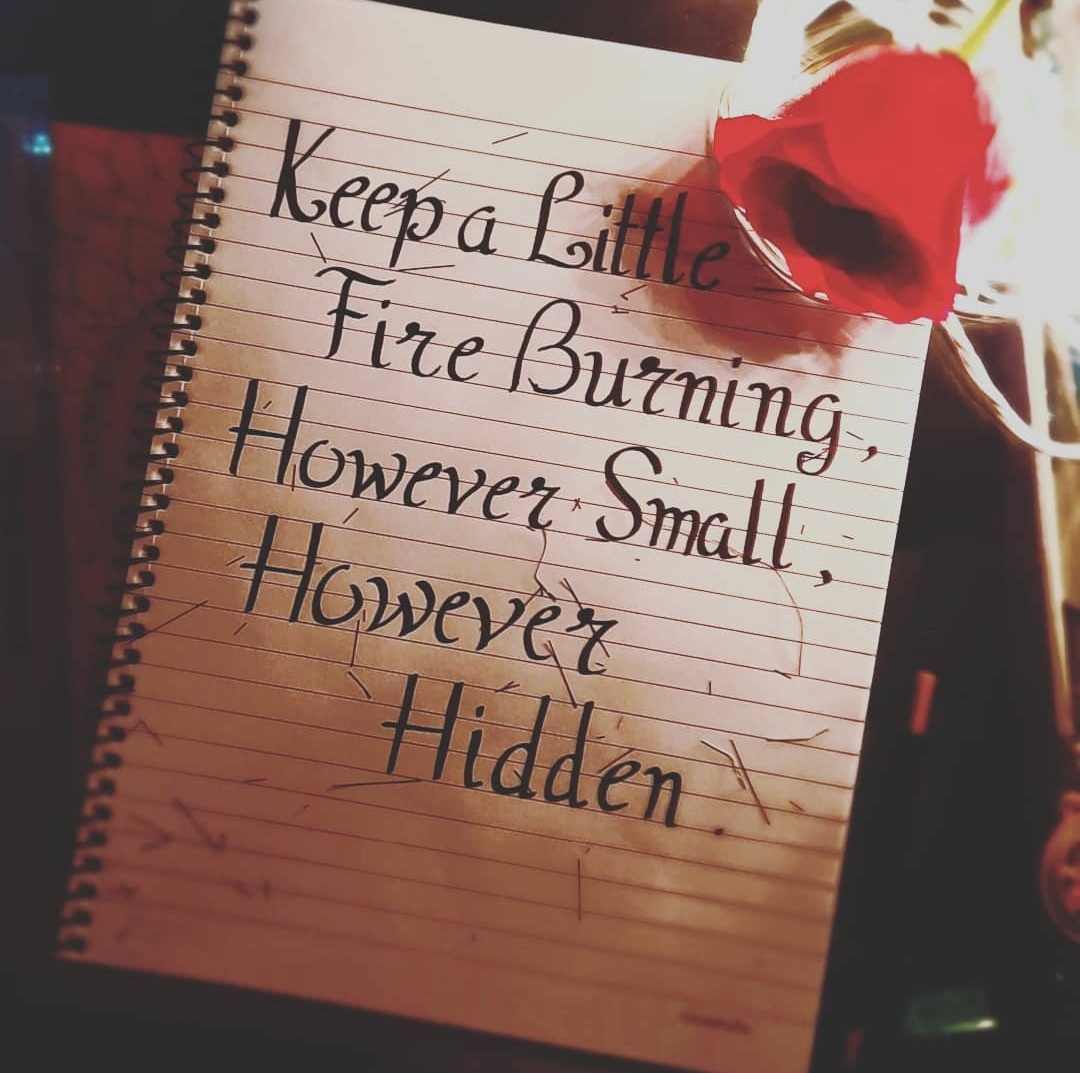 Keep a Little
Fire Burning,
However Small,
However
Hidden.